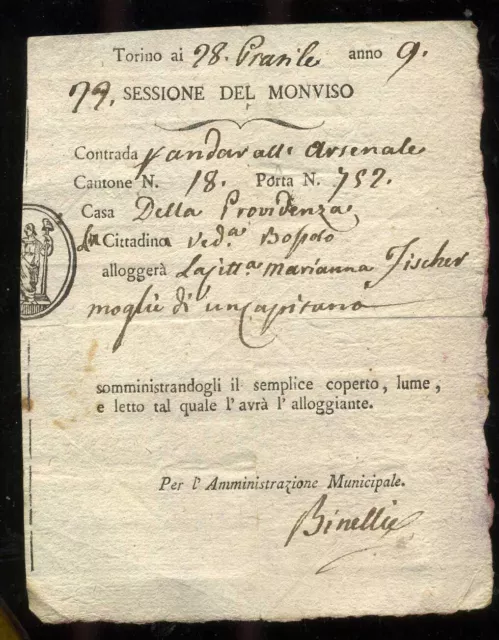 Torino ai 28. Pratile anno 9.
79. SESSIONE DEL MONVISO
Contrada p andar all' Arsenale
Cantone N. 18. Porta N. 752.
Casa Della Providenza
La Cittadina Ved.a
alloggerà La Citt.a Marianna Fischer
moglie di un Capitano
somministrandogli il semplice coperto, lume,
e letto tal quale l'avrà l'alloggiante.
Per l'Amministrazione Municipale.
Binelli